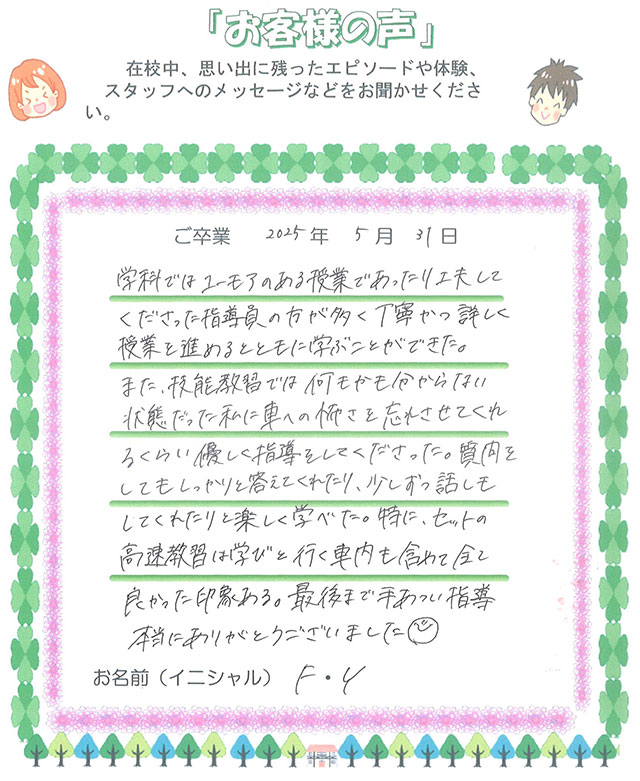 「お客様の声」
在校中、思い出に残ったエピソードや体験、
スタッフへのメッセージなどをお聞かせくださ
い。
ご卒業 2025年 5月 31日
学科ではユーモアのある授業であったり工夫して
くださった指導員の方が多く丁寧かつ詳しく
授業を進めるとともに学ぶことができた。
また、技能教習では何もかも分からない
状態だった私に車への怖さを忘れさせてくれ
るくらい優しく指導をしてくださった。質問を
してもしっかりと答えてくれたり、少しずつ話しも
してくれたりと楽しく学べた。特に、セットの
高速教習は学びと行く車内も含めて全て
良かった印象ある。最後まで手あつい指導
本当にありがとうございました
お名前（イニシャル） F・Y